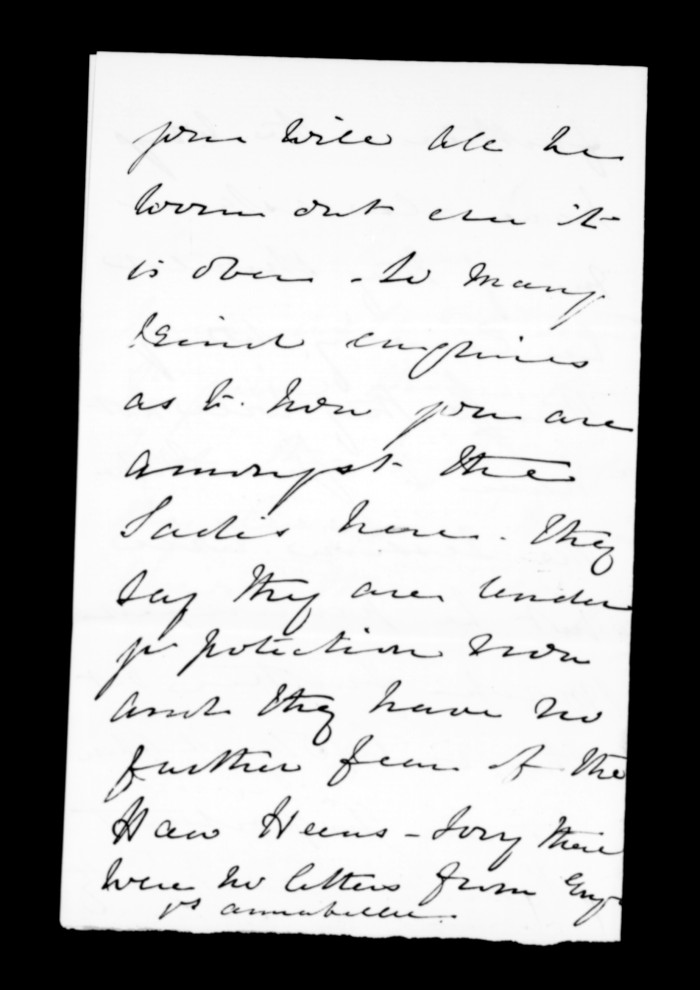 you will all be
worn out ere it
is over - So many
kind enquiries
as to how you are
amongst the
Ladies here. They
say they are under
yr protection now
and they have no
further fear of the
Haw Heens - Sorry there
were no letters from Eng
yrs Annabella.